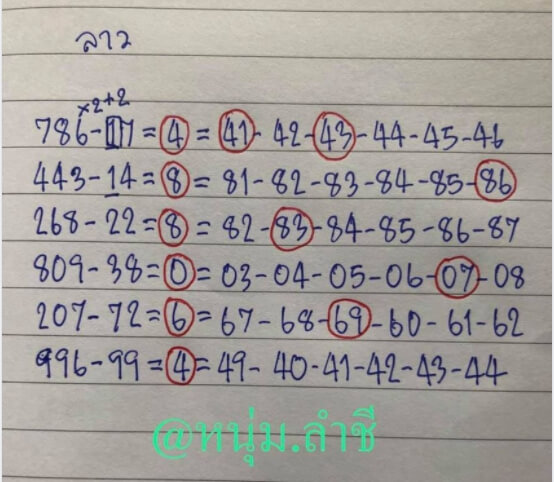 ลาว
×2+2
786-17=4=41-42-43-44-45-46
443-14=8=81-82-83-84-85-86
268-22=8=82-83-84-85-86-87
809-38=0=03-04-05-06-07-08
207-72=6=67-68-69-60-61-62
996-99=4=49-40-41-42-43-44
@หนุ่ม.ลำชี